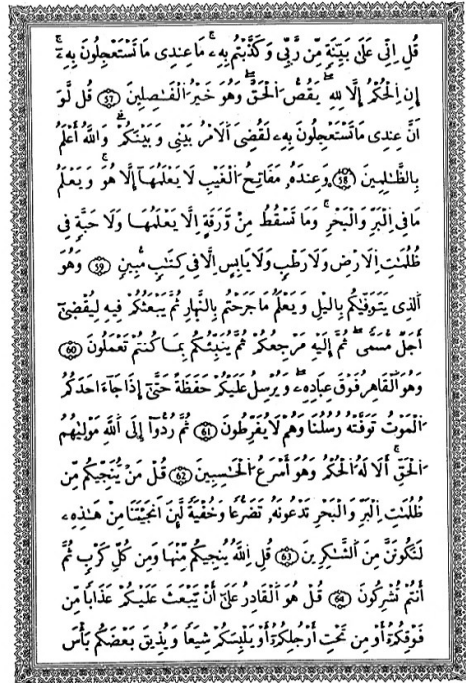 قُلِ اِنِّى عَلَىٰ بَيِّنَةٍ مِّن رَّبِّى وَكَذَّبْتُم بِهِۦ مَا عِندِى مَا تَسْتَعْجِلُونَ بِهِۦٓ
إِنِ اِلْحُكْمُ إِلَّا لِلهِ يَقُصُّ اُلْحَقَّ وَهُوَ خَيْرُ اُلْفَٰصِلِينَ 57 قُل لَّوَ
اَنَّ عِندِى مَا تَسْتَعْجِلُونَ بِهِۦ لَقُضِىَ اَلَامْرُ بَيْنِى وَبَيْنَكُمْ وَاللهُ أَعْلَمُ
بِالظَّٰلِمِينَ 58 وَعِندَهُۥ مَفَاتِحُ اُلْغَيْبِ لَا يَعْلَمُهَآ إِلَّا هُوَ وَيَعْلَمُ
مَا فِى اِلْبَرِّ وَالْبَحْرِ وَمَا تَسْقُطُ مِنْ وَّرَقَةٍ اِلَّا يَعْلَمُهَا وَلَا حَبَّةٍ فِى
ظُلُمَٰتِ اِلَارْضِ وَلَا رَطْبٍ وَلَا يَابِسٍ اِلَّا فِى كِتَٰبٍ مُّبِينٍ 59 وَهُوَ
اَلذِى يَتَوَفَّيٰكُم بِاليْلِ وَيَعْلَمُ مَا جَرَحْتُم بِالنَّهارِ ثُمَّ يَبْعَثُكُمْ فِيهِ لِيُقْضَىٰٓ
أَجَلٌ مُّسَمّىً ثُمَّ إِلَيْهِ مَرْجِعُكُمْ ثُمَّ يُنَبِّئُكُم بِمَا كُنتُمْ تَعْمَلُونَ 60
وَهُوَ اَلْقَاهِرُ فَوْقَ عِبَادِهِۦ وَيُرْسِلُ عَلَيْكُمْ حَفَظَةً حَتَّىٰٓ إِذَا جَآءَ احَدَكُمُ
اُلْمَوْتُ تَوَفَّتْهُ رُسُلُنَا وَهُمْ لَا يُفَرِّطُونَ 61 ثُمَّ رُدُّوٓاْ إِلَى اَللَّهِ مَوْلَيٰهُمُ
اُلْحَقِّ أَلَا لَهُ اُلْحُكْمُ وَهُوَ أَسْرَعُ اُلْحَٰسِبِينَ 62 قُلْ مَنْ يُّنَجِّيكُم مِّن
ظُلُمَٰتِ اِلْبَرِّ وَالْبَحْرِ تَدْعُونَهُۥ تَضَرُّعاً وَخُفْيَةً لَّئِنَ اَنجَيْتَنَا مِنْ هَٰذِهِۦ
لَنَكُونَنَّ مِنَ اَلشَّٰكِرِينَ 63 قُلِ اِللَّهُ يُنجِيكُم مِّنْهَا وَمِن كُلِّ كَرْبٍ ثُمَّ
أَنتُمْ تُشْرِكُونَ 64 قُلْ هُوَ اَلْقَادِرُ عَلَىٰٓ أَنْ يَّبْعَثَ عَلَيْكُمْ عَذَاباً مِّن
فَوْقِكُمُۥٓ أَوْ مِن تَحْتِ أَرْجُلِكُمُۥٓ أَوْ يَلْبِسَكُمْ شِيَعاً وَيُذِيقَ بَعْضَكُم بَأْسَ